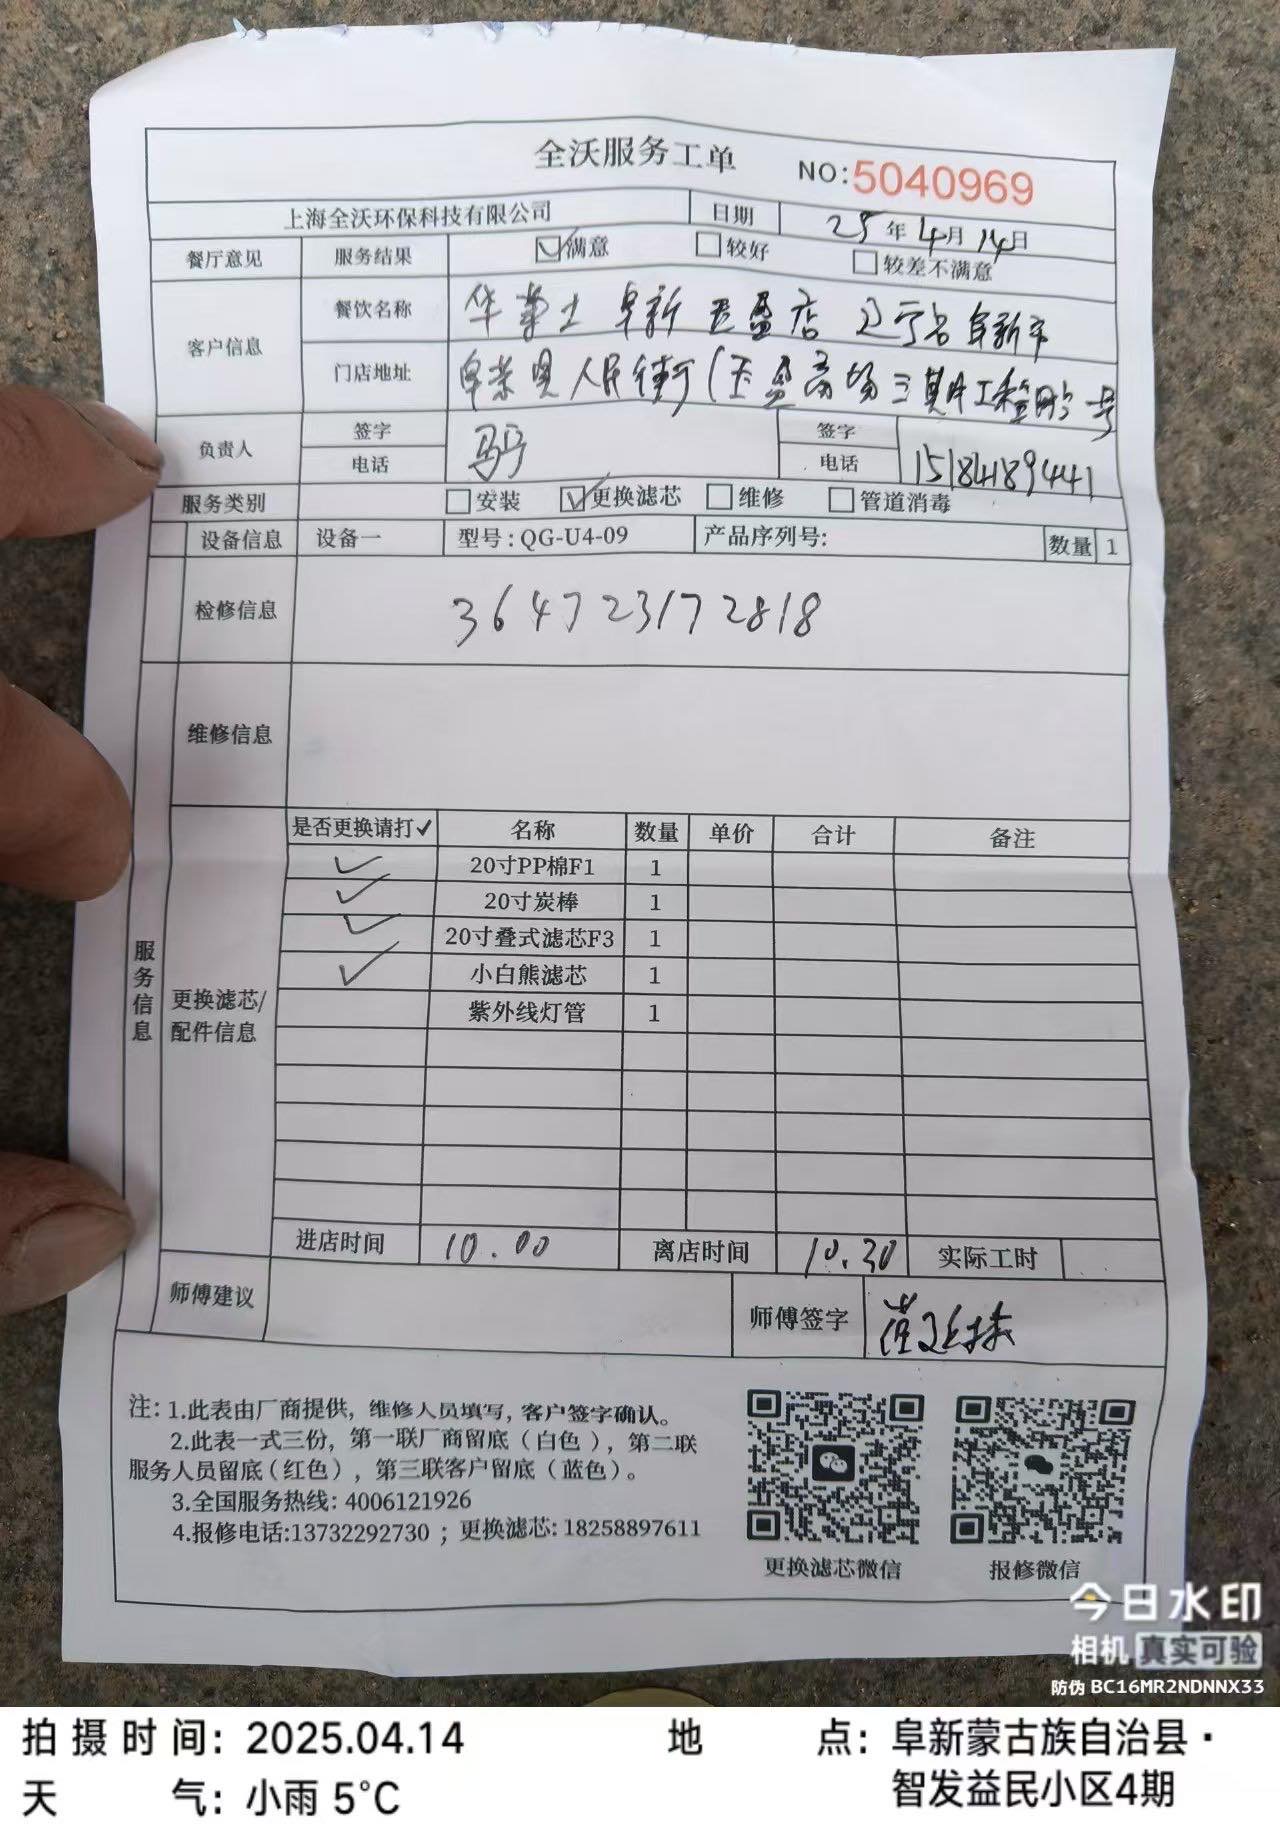 全沃服务工单 NO:5040969
上海全沃环保科技有限公司 日期 25年4月14日
餐厅意见 服务结果 ☑满意 □较好 □较差不满意
客户信息 餐饮名称 华莱士 阜新 玉盛店 辽宁省 阜新市
门店地址 阜蒙县人民街(玉盛商场三期工程 号
负责人 签字 签字
电话 电话 15184189441
服务类别 □安装 ☑更换滤芯 □维修 □管道消毒
设备信息 设备一 型号:QG-U4-09 产品序列号: 数量 1
检修信息 364723172818
维修信息
服务信息
更换滤芯/配件信息
是否更换请打✓ 名称 数量 单价 合计 备注
✓ 20寸PP棉F1 1
✓ 20寸炭棒 1
✓ 20寸叠式滤芯F3 1
✓ 小白熊滤芯 1
紫外线灯管 1
进店时间 10.00 离店时间 10.30 实际工时
师傅建议 师傅签字
注:1.此表由厂商提供，维修人员填写，客户签字确认。
2.此表一式三份，第一联厂商留底（白色），第二联
服务人员留底（红色），第三联客户留底（蓝色）。
3.全国服务热线: 4006121926
4.报修电话:13732292730 ；更换滤芯: 18258897611
更换滤芯微信 报修微信
今日水印
相机 真实可验
防伪 BC16MR2NDNNX33
拍摄时间: 2025.04.14 地点: 阜新蒙古族自治县·
天气: 小雨 5°C 智发益民小区4期